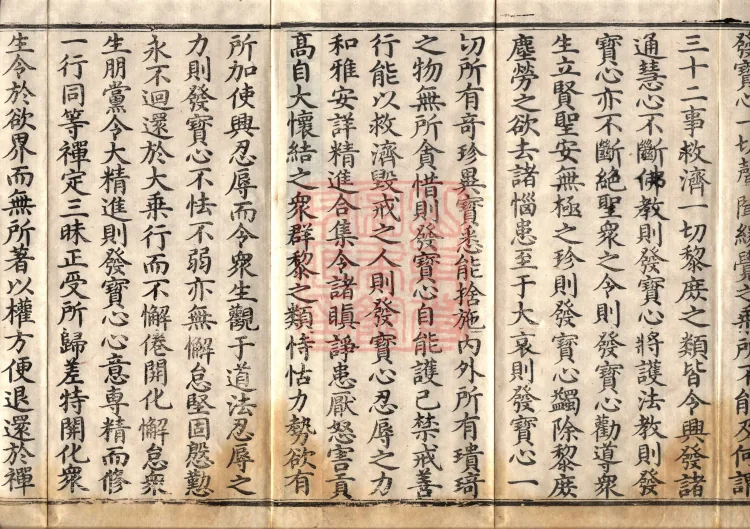 發寶心一切聲聞緣覺之乘所不能及何謂
三十二事救濟一切黎庶之類皆令興發諸
通慧心不斷佛教則發寶心將護法教則發
寶心亦不斷絕聖眾之令則發寶心勸導眾
生立賢聖安無極之珍則發寶心蠲除黎庶
塵勞之欲去諸惱患至于大哀則發寶心一
切所有奇珍異寶悉能捨施內外所有瓌琦
之物無所貪惜則發寶心自能護己禁戒善
行能以救濟毀戒之人則發寶心忍辱之力
和雅安詳精進合集令諸瞋諍恚厭怒害貢
高自大懷結之眾群黎之類恃怙力勢欲有
所加使興忍辱而令眾生觀于道法忍辱之
力則發寶心不怯不弱亦無懈怠堅固慇懃
永不迴還於大乘行而不懈倦開化懈怠眾
生朋黨令大精進則發寶心心意專精而修
一行同等禪定三昧正受所歸差特開化眾
生令於欲界而無所著以權方便退還於禪